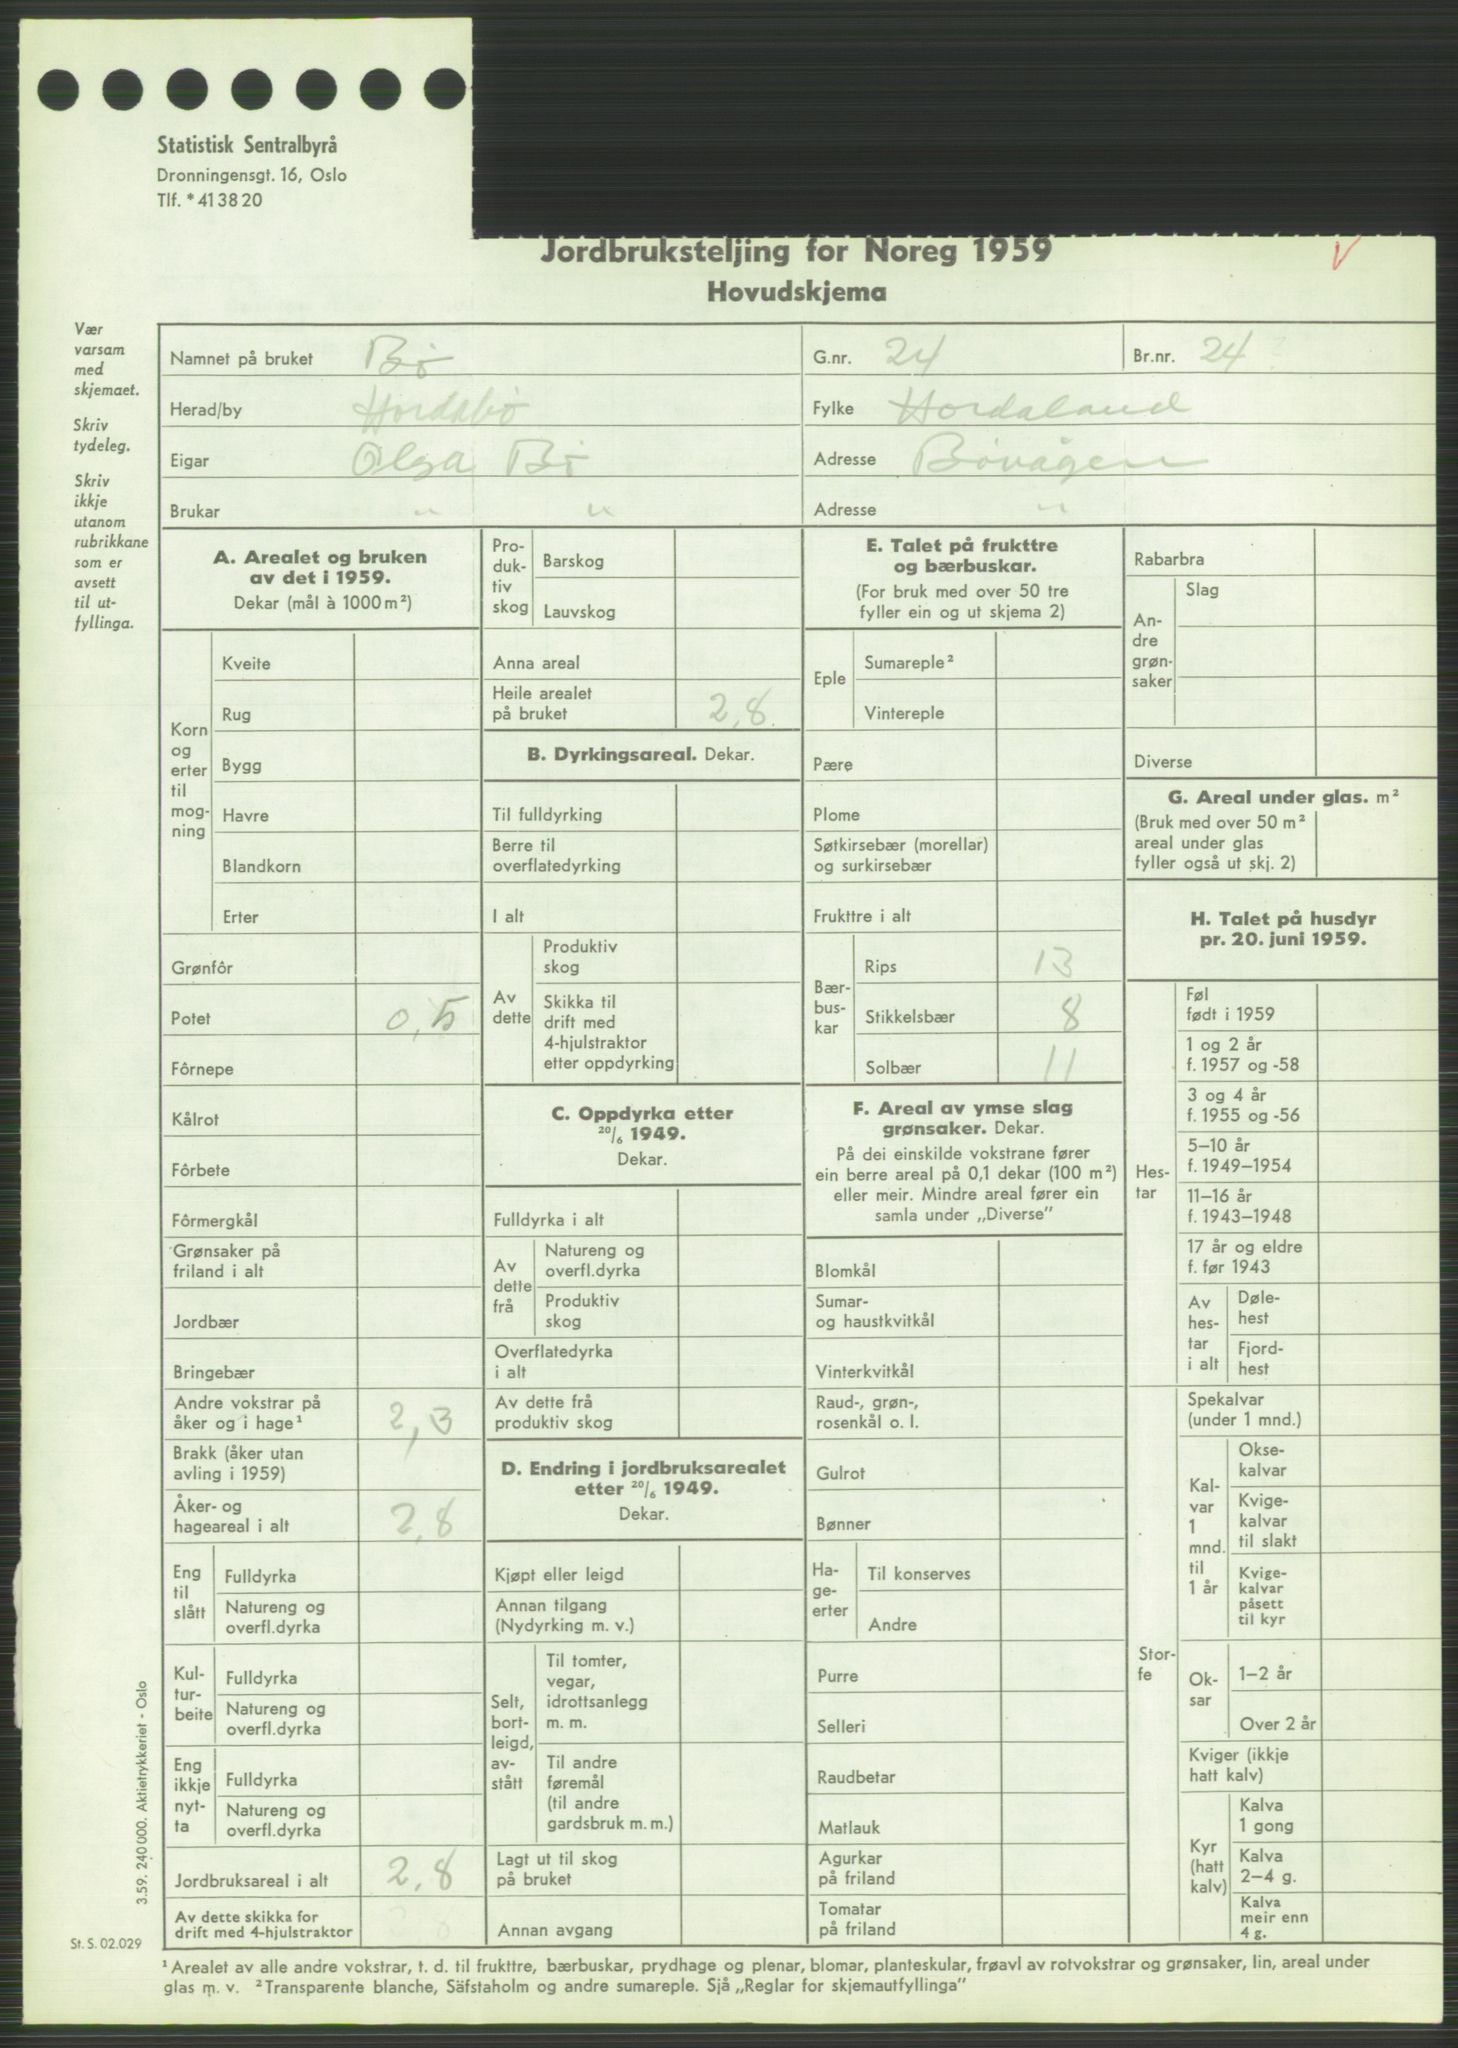 Statistisk Sentralbyrå
Dronningensgt. 16, Oslo
Tlf. *41 38 20
Jordbruksteljing for Noreg 1959
V
Hovudskjema
Vær
varsam
med
skjemaet.
Skriv
tydeleg.
Skriv
ikkje
utanom
rubrikkane
som er
avsett
til ut-
fyllinga.
Namnet på bruket Bø G.nr. 24 Br.nr. 24
Herad/by Hordabø Fylke Hordaland
Eigar Olga Bø Adresse Bøvågen
Brukar " " Adresse "
A. Arealet og bruken
av det i 1959.
Dekar (mål à 1000 m²)
Korn
og
erter
til
mog-
ning
Kveite
Rug
Bygg
Havre
Blandkorn
Erter
Grønfôr
Potet 0,5
Fôrnepe
Kålrot
Fôrbete
Fôrmergkål
Grønsaker på
friland i alt
Jordbær
Bringebær
Andre vokstrar på
åker og i hage¹ 2,3
Brakk (åker utan
avling i 1959)
Åker- og
hageareal i alt 2,8
Eng
til
slått
Fulldyrka
Natureng og
overfl.dyrka
Kul-
tur-
beite
Fulldyrka
Natureng og
overfl.dyrka
Eng
ikkje
nyt-
ta
Fulldyrka
Natureng og
overfl.dyrka
Jordbruksareal i alt 2,8
Av dette skikka for
drift med 4-hjulstraktor
Pro-
duk-
tiv
skog
Barskog
Lauvskog
Anna areal
Heile arealet
på bruket 2,8
B. Dyrkingsareal. Dekar.
Til fulldyrking
Berre til
overflatedyrking
I alt
Av
dette
Produktiv
skog
Skikka til
drift med
4-hjulstraktor
etter oppdyrking
C. Oppdyrka etter
20/6 1949.
Dekar.
Fulldyrka i alt
Av
dette
frå
Natureng og
overfl.dyrka
Produktiv
skog
Overflatedyrka
i alt
Av dette frå
produktiv skog
D. Endring i jordbruksarealet
etter 20/6 1949.
Dekar.
Kjøpt eller leigd
Annan tilgang
(Nydyrking m. v.)
Selt,
bort-
leigd,
av-
stått
Til tomter,
vegar,
idrottsanlegg
m. m.
Til andre
føremål
(til andre
gardsbruk m. m.)
Lagt ut til skog
på bruket
Annan avgang
E. Talet på frukttre
og bærbuskar.
(For bruk med over 50 tre
fyller ein og ut skjema 2)
Eple
Sumareple²
Vintereple
Pære
Plome
Søtkirsebær (morellar)
og surkirsebær
Frukttre i alt
Bær-
bus-
kar
Rips 13
Stikkelsbær 8
Solbær 11
F. Areal av ymse slag
grønsaker. Dekar.
På dei einskilde vokstrane fører
ein berre areal på 0,1 dekar (100 m²)
eller meir. Mindre areal fører ein
samla under „Diverse”
Blomkål
Sumar-
og haustkvitkål
Vinterkvitkål
Raud-, grøn-,
rosenkål o. l.
Gulrot
Bønner
Ha-
ge-
erter
Til konserves
Andre
Purre
Selleri
Raudbetar
Matlauk
Agurkar
på friland
Tomatar
på friland
Rabarbra
An-
dre
grøn-
saker
Slag
Diverse
G. Areal under glas. m²
(Bruk med over 50 m²
areal under glas
fyller også ut skj. 2)
H. Talet på husdyr
pr. 20. juni 1959.
Hes-
tar
Føl
født i 1959
1 og 2 år
f. 1957 og -58
3 og 4 år
f. 1955 og -56
5–10 år
f. 1949–1954
11–16 år
f. 1943–1948
17 år og eldre
f. før 1943
Av
hes-
tar
i alt
Døle-
hest
Fjord-
hest
Stor-
fe
Spekalvar
(under 1 mnd.)
Kal-
var
1
mnd.
til
1 år
Okse-
kalvar
Kvige-
kalvar
til slakt
Kvige-
kalvar
påsett
til kyr
Ok-
sar
1–2 år
Over 2 år
Kviger (ikkje
hatt kalv)
Kyr
(hatt
kalv)
Kalva
1 gong
Kalva
2–4 g.
Kalva
meir enn
4 g.
3.59. 240 000. Aktietrykkeriet - Oslo
St. S. 02.029
¹ Arealet av alle andre vokstrar, t. d. til frukttre, bærbuskar, prydhage og plenar, blomar, planteskular, frøavl av rotvokstrar og grønsaker, lin, areal under
glas m. v. ² Transparente blanche, Säfstaholm og andre sumareple. Sjå „Reglar for skjemautfyllinga”